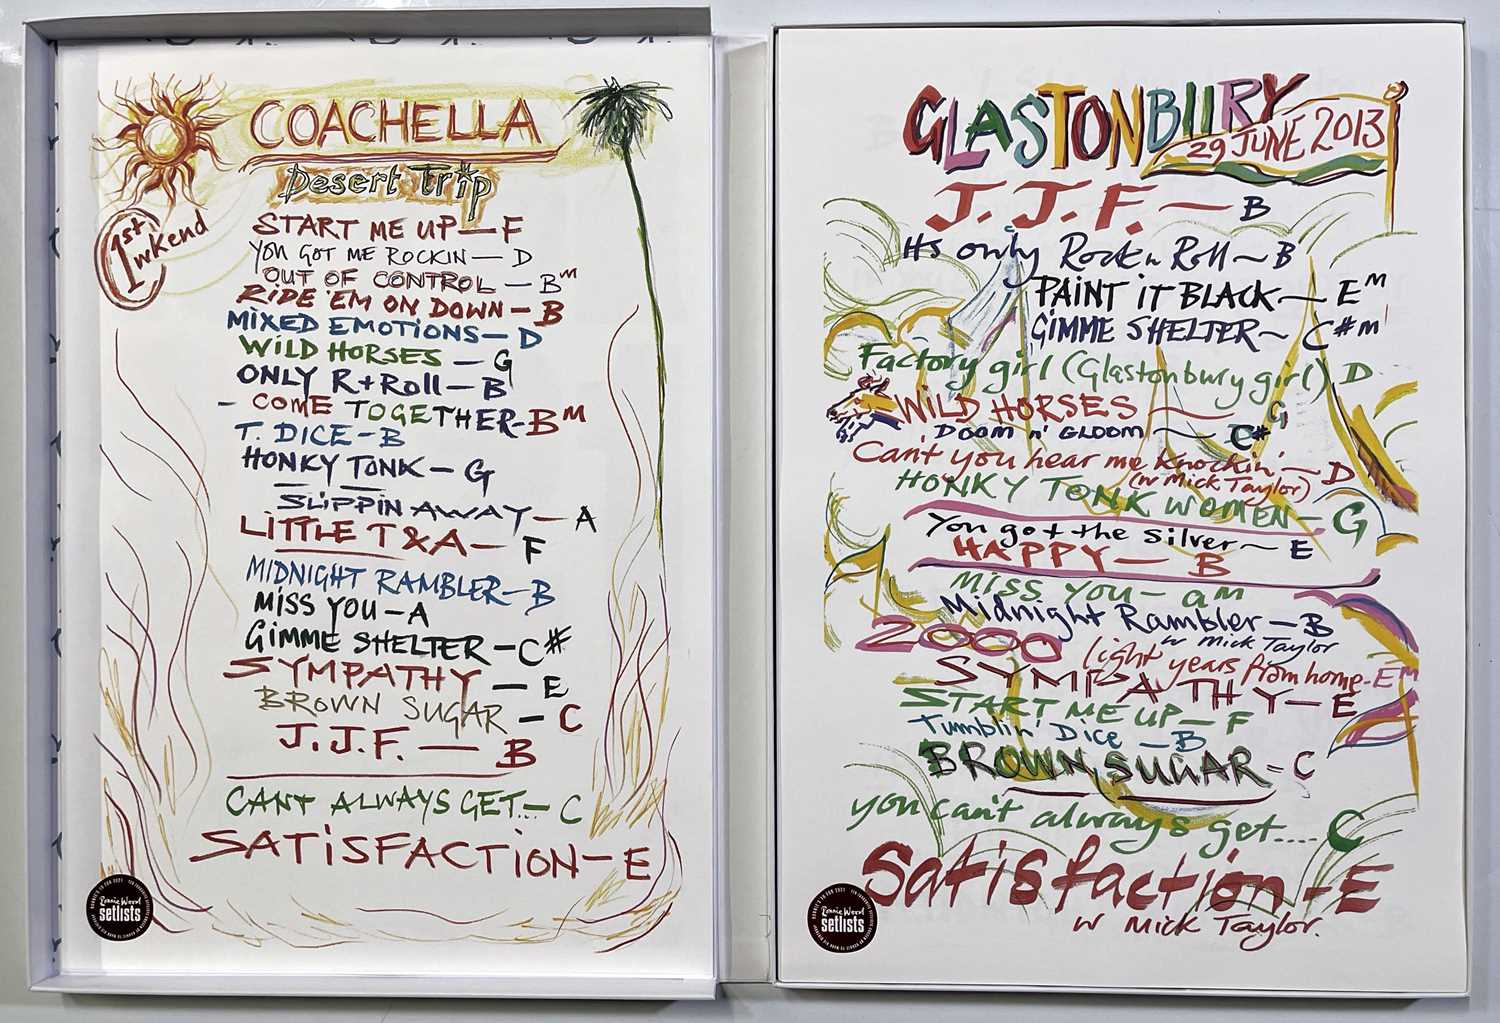 COACHELLA
Desert Trip
1st wkend
START ME UP — F
YOU GOT ME ROCKIN — D
OUT OF CONTROL — Bm
RIDE 'EM ON DOWN — B
MIXED EMOTIONS — D
WILD HORSES — G
ONLY R+Roll — B
- COME TOGETHER - Bm
T. DICE - B
HONKY TONK — G
SLIPPIN AWAY — A
LITTLE T&A — F
MIDNIGHT RAMBLER — B
MISS YOU — A
GIMME SHELTER — C#
SYMPATHY — E
BROWN SUGAR — C
J.J.F. — B
CANT ALWAYS GET... — C
SATiSFACTiON — E
Ronnie Wood
setlists
GLASTONBURY
29 JUNE 2013
J.J.F. — B
Its only Rock n Roll ~ B
PAINT iT BLACK — Em
GIMME SHELTER ~ C#m
Factory girl (Glastonbury girl) D
WILD HORSES — G
DOOM n' GLOOM ~ C#
Can't you hear me knockin' ~ D
(w Mick Taylor)
HONKY TONK WOMEN - G
You got the Silver ~ E
HAPPY — B
MISS YOU - am
Midnight Rambler — B
w Mick Taylor
2000 light years from home - Em
SYMPATHY — E
START ME UP — F
Tumblin' Dice — B
BROWN SUGAR - C
you can't always get.... C
Satisfaction - E
w Mick Taylor.
Ronnie Wood
setlists